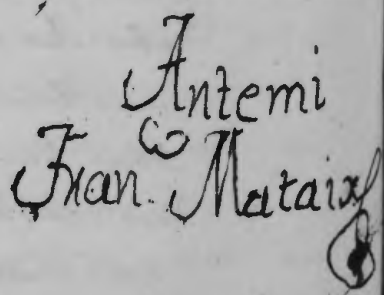 Antemi
Fran.co Mataix